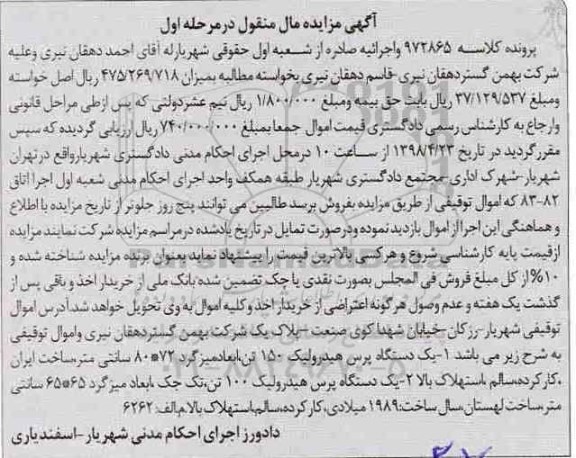 آگهی مزایده مال منقول در مرحله اول
پرونده کلاسه ۹۷۲۸۶۵ واجرائیه صادره از شعبه اول حقوقی شهریارله آقای احمد دهقان نیری وعلیه
شرکت بهمن گستردهقان نیری -قاسم دهقان نیری بخواسته مطالبه بمیزان ۴۷۵/۲۶۹/۷۱۸ ریال اصل خواسته
ومبلغ ۳۷/۱۲۹/۵۳۷ ریال بابت حق بیمه ومبلغ ۱/۸۰۰/۰۰۰ ریال نیم عشردولتی که پس ازطی مراحل قانونی
وارجاع به کارشناس رسمی دادگستری قیمت اموال جمعا بمبلغ ۷۴۰/۰۰۰/۰۰۰ ریال ارزیابی گردیده که سپس
مقررگردید در تاریخ ۱۳۹۸/۴/۲۳ از ساعت ۱۰ درمحل اجرای احکام مدنی دادگستری شهریارواقع درتهران
شهریار-شهرک اداری-مجتمع دادگستری شهریار طبقه همکف واحد اجرای احکام مدنی شعبه اول اجرا اتاق
۸۲-۸۳ که اموال توقیفی از طریق مزایده بفروش برسد طالبین می توانند پنج روز جلوتر از تاریخ مزایده با اطلاع
و هماهنگی این اجرا از اموال بازدید نموده ودرصورت تمایل درتاریخ یادشده درمراسم مزایده شرکت نمایند مزایده
ازقیمت پایه کارشناسی شروع و هرکسی بالاترین قیمت را پیشنهاد نماید بعنوان برنده مزایده شناخته شده و
۱۰% از کل مبلغ فروش فی المجلس بصورت نقدی یا چک تضمین شده بانک ملی از خریدار اخذ و باقی پس از
گذشت یک هفته و عدم وصول هرگونه اعتراضی از خریدار اخذ وکلیه اموال به وی تحویل خواهد شد.آدرس اموال
توقیفی شهریار-رزکان-خیابان شهدا کوی صنعت -پلاک یک شرکت بهمن گستردهقان نیری واموال توقیفی
به شرح زیر می باشد ۱-یک دستگاه پرس هیدرولیک ۱۵۰ تن،ابعادمیزگرد ۷۲*۸۰ سانتی متر،ساخت ایران
،کارکرده،سالم ،استهلاک بالا ۲-یک دستگاه پرس هیدرولیک ۱۰۰ تن،تک جک ،ابعاد میزگرد ۶۵*۶۵ سانتی
متر،ساخت لهستان،سال ساخت:۱۹۸۹ میلادی،کارکرده،سالم،استهلاک بالا م/الف: ۶۲۶۲
دادورز اجرای احکام مدنی شهریار -اسفندیاری